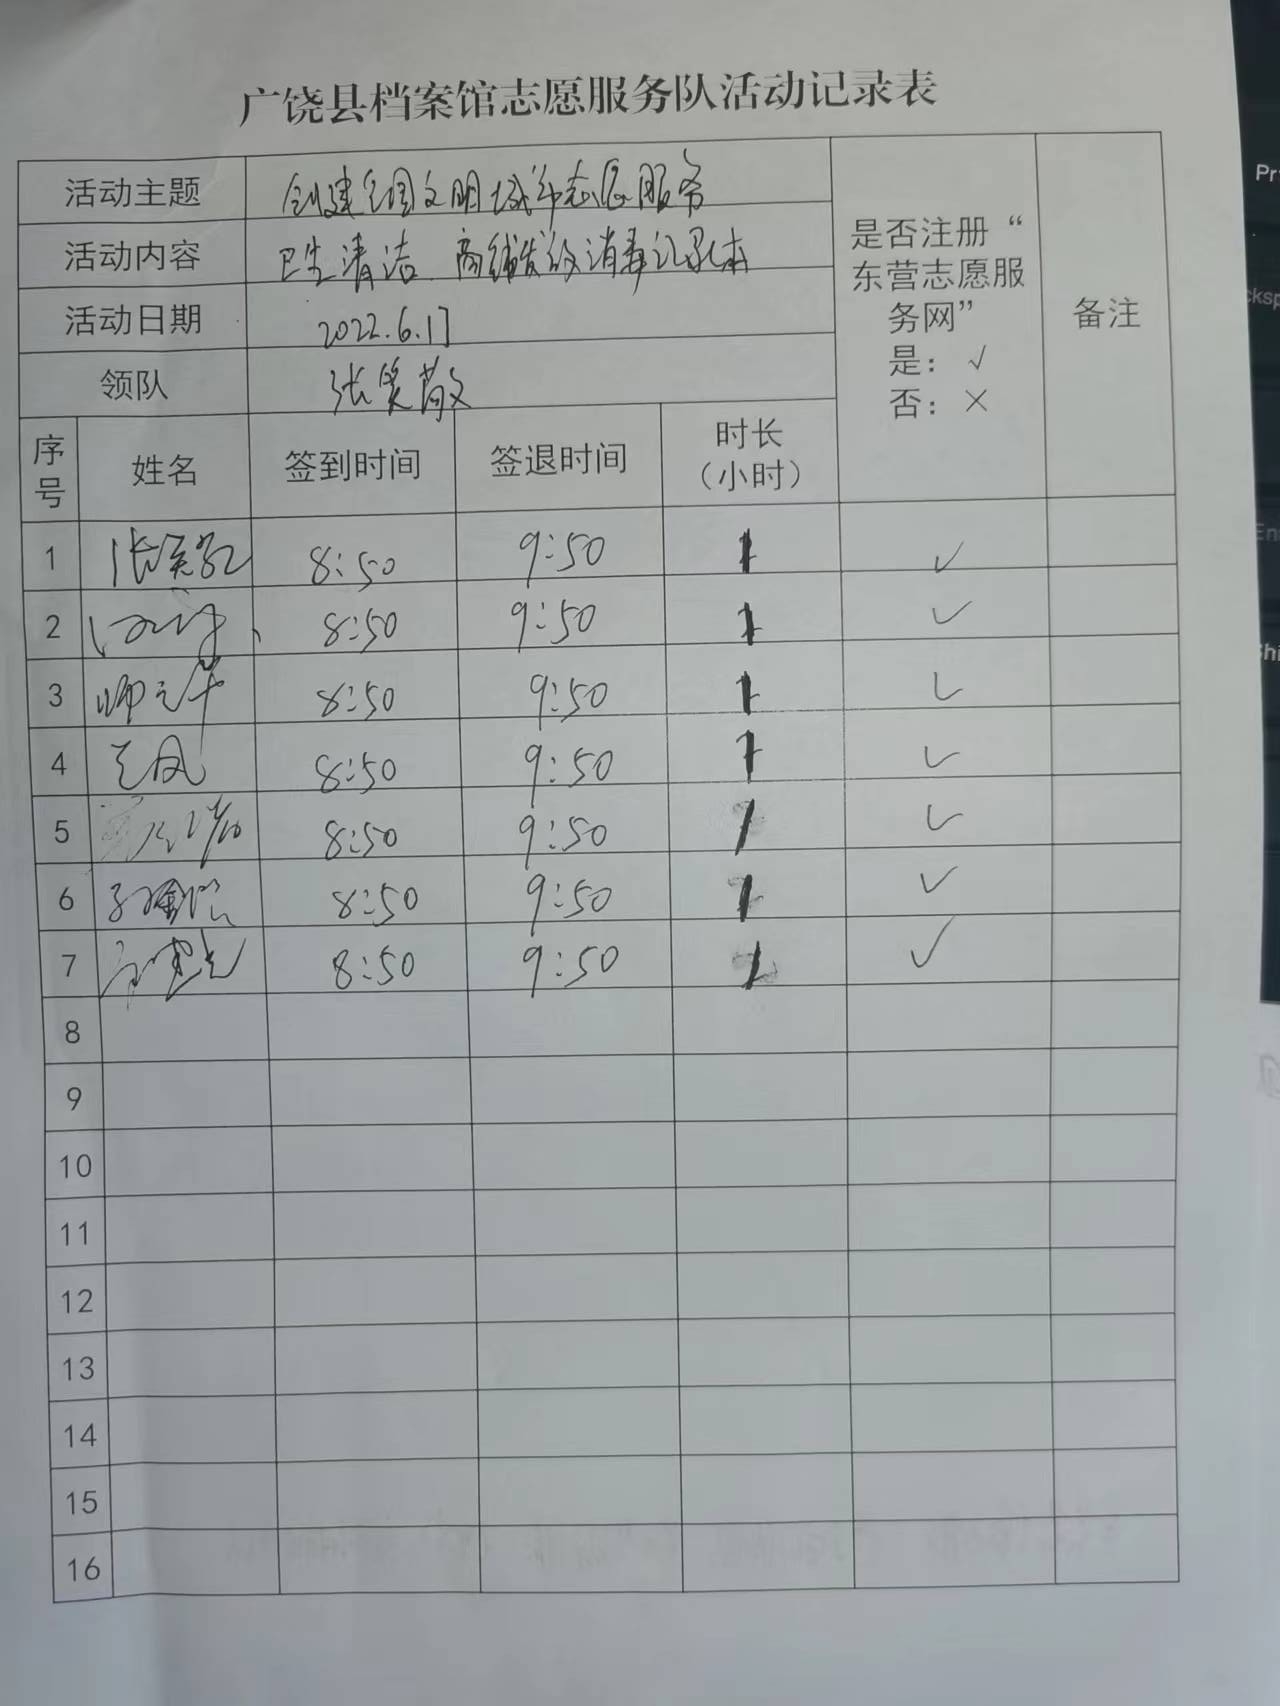 广饶县档案馆志愿服务队活动记录表
活动主题 创建全国文明城市志愿服务
活动内容 卫生清洁 商铺发放消毒记录本
活动日期 2022.6.17
领队 张笑敬
是否注册“
东营志愿服
务网”
是：√
否：×
备注
序号 姓名 签到时间 签退时间 时长（小时）
1 8:50 9:50 1 ✓
2 8:50 9:50 1 ✓
3 8:50 9:50 1 ✓
4 8:50 9:50 1 ✓
5 8:50 9:50 1 ✓
6 8:50 9:50 1 ✓
7 8:50 9:50 1 ✓
8
9
10
11
12
13
14
15
16